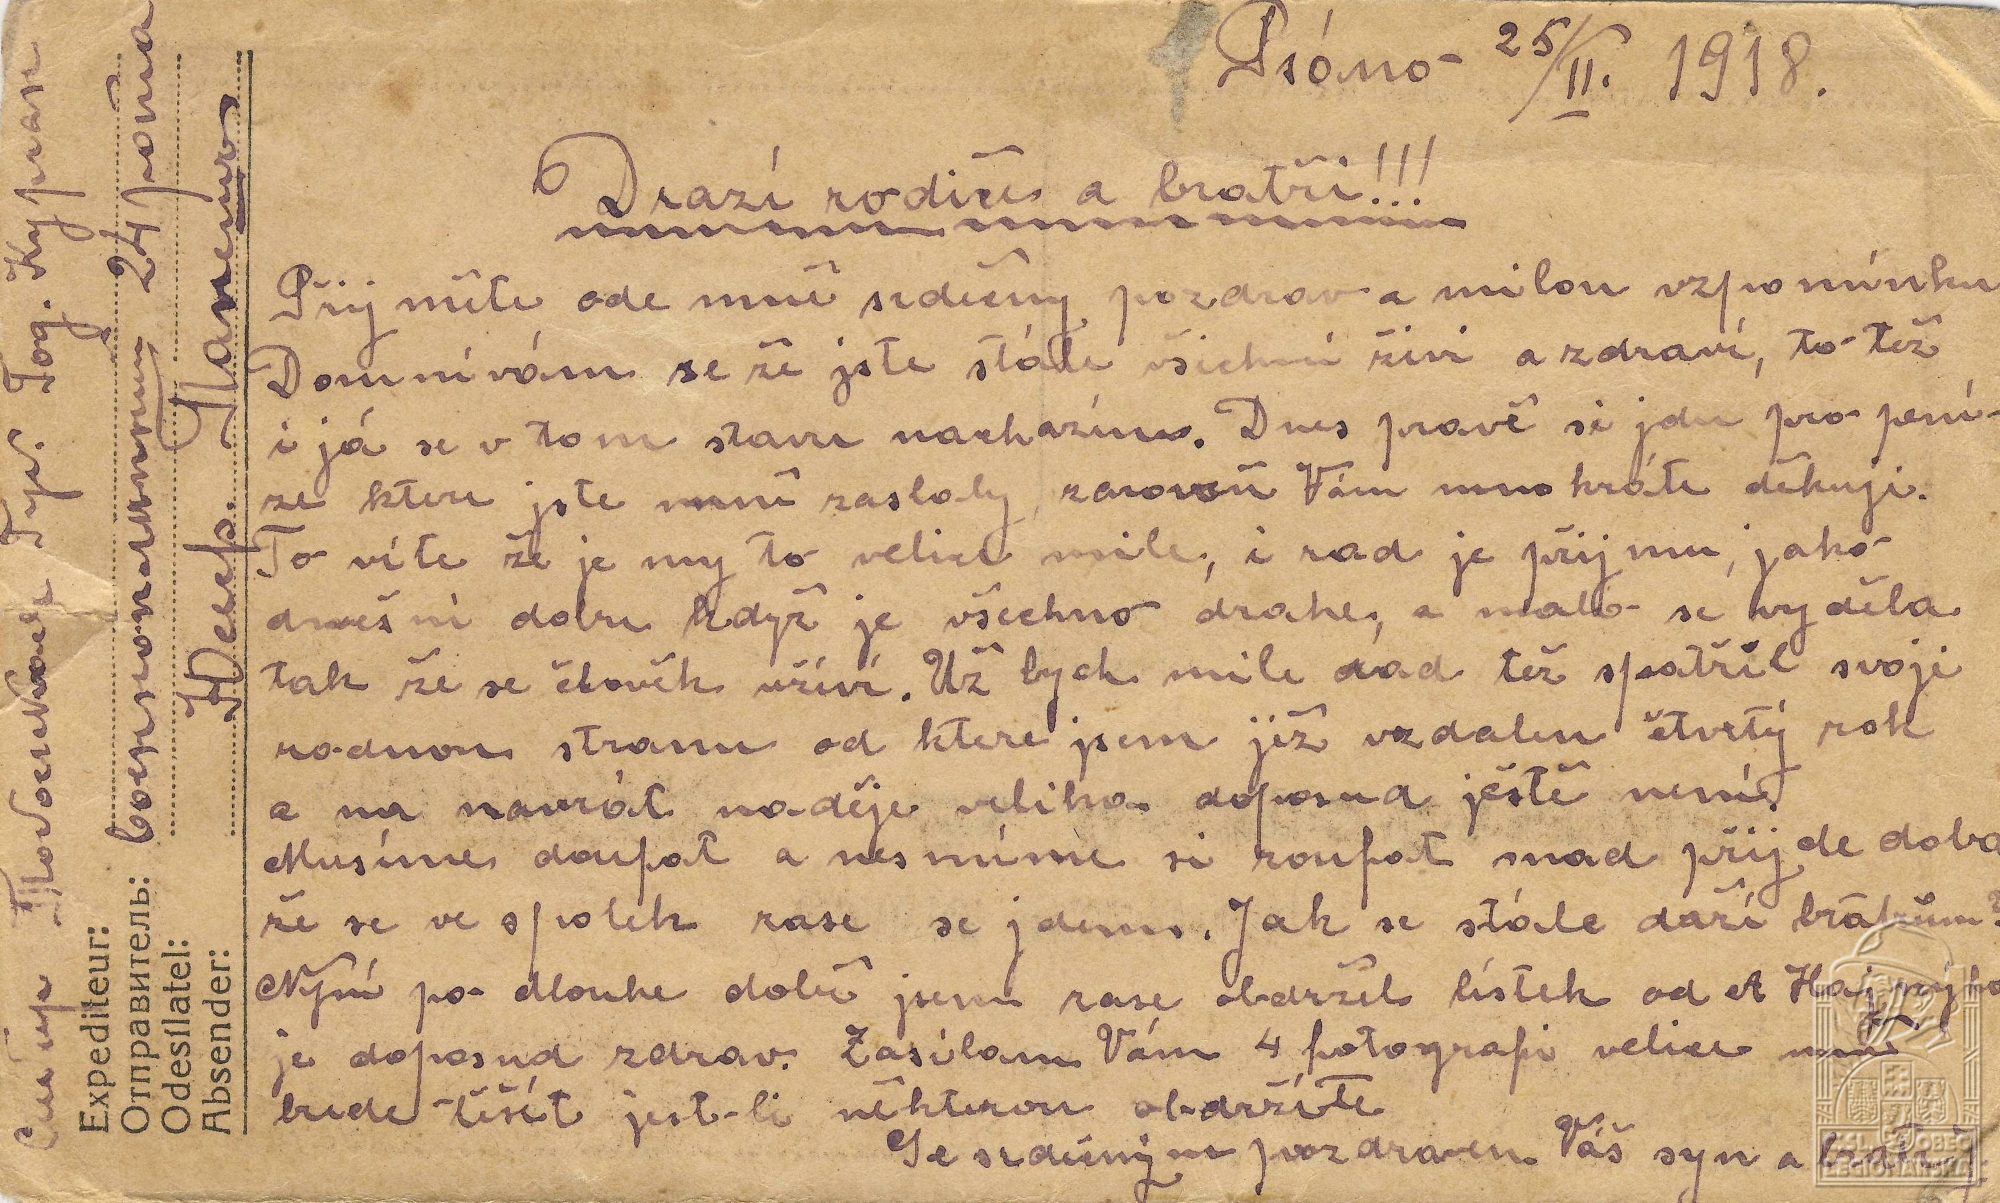 Psáno 25/II. 1918.
Drazí rodiče a bratři!!!
Přijměte ode mně srdečny pozdrav a milou vzpomínku
Domnívám se že jste stále všichni živi a zdraví, to též
i já se v tom stavu nacházím. Dnes pravě si jdu pro pení-
ze kteru jste mně zaslaly, zaroveň Vám mnohráte děkuji.
To víte že je my to velice mile, i rad je přijmu, jako
dnešní dobu když je všechno drahe, a malo se vyděla
tak že se člověk uživí. Už bych mile rad též spatřil svoji
rodnou stranu od ktere jsem již vzdalen čtvrtý rok
a na navrát naděje velika doposud ještě není.
Musíme doufat a nesmíme si zoufat snad přijde doba
že se ve spolek zase se jdem. Jak se stále daří brátrům?
Nýní po dlouhe době jsem zase obdržel lístek od A
je doposud zdrav. Zasílam Vám 4 fotografi velice mě
bude těšit jest-li některou obdržíte
Se srdečným pozdravem Váš syn a bratr
Expediteur:
Отправитель: военнопленный 24 рота
Odesílatel:
Absender:
Юсеф.